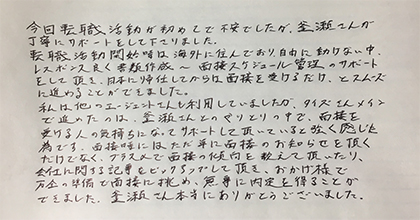 今回転職活動が初めてで不安でしたが、釜瀬さんが
丁寧にサポートをして下さりました。
転職活動開始時は海外に住んでおり、自由に動けない中、
レスポンス良く書類作成〜面接スケジュール管理のサポート
をして頂き、日本に帰任してからは面接を受けるだけ、とスムーズ
に進めることができました。
私は他のエージェントさんも利用していましたが、タイズさんメイン
で進めたのは、釜瀬さんとのやりとりの中で、面接を
受ける人の気持ちになってサポートして頂いていると強く感じた
為です。面接時にはただ単に面接のお知らせを頂く
だけでなく、プラスαで面接の傾向を教えて頂いたり、
会社に関する記事をピックアップして頂き、おかげ様で
万全の準備で面接に挑め、無事に内定を得ることが
できました。釜瀬さん本当にありがとうございました。